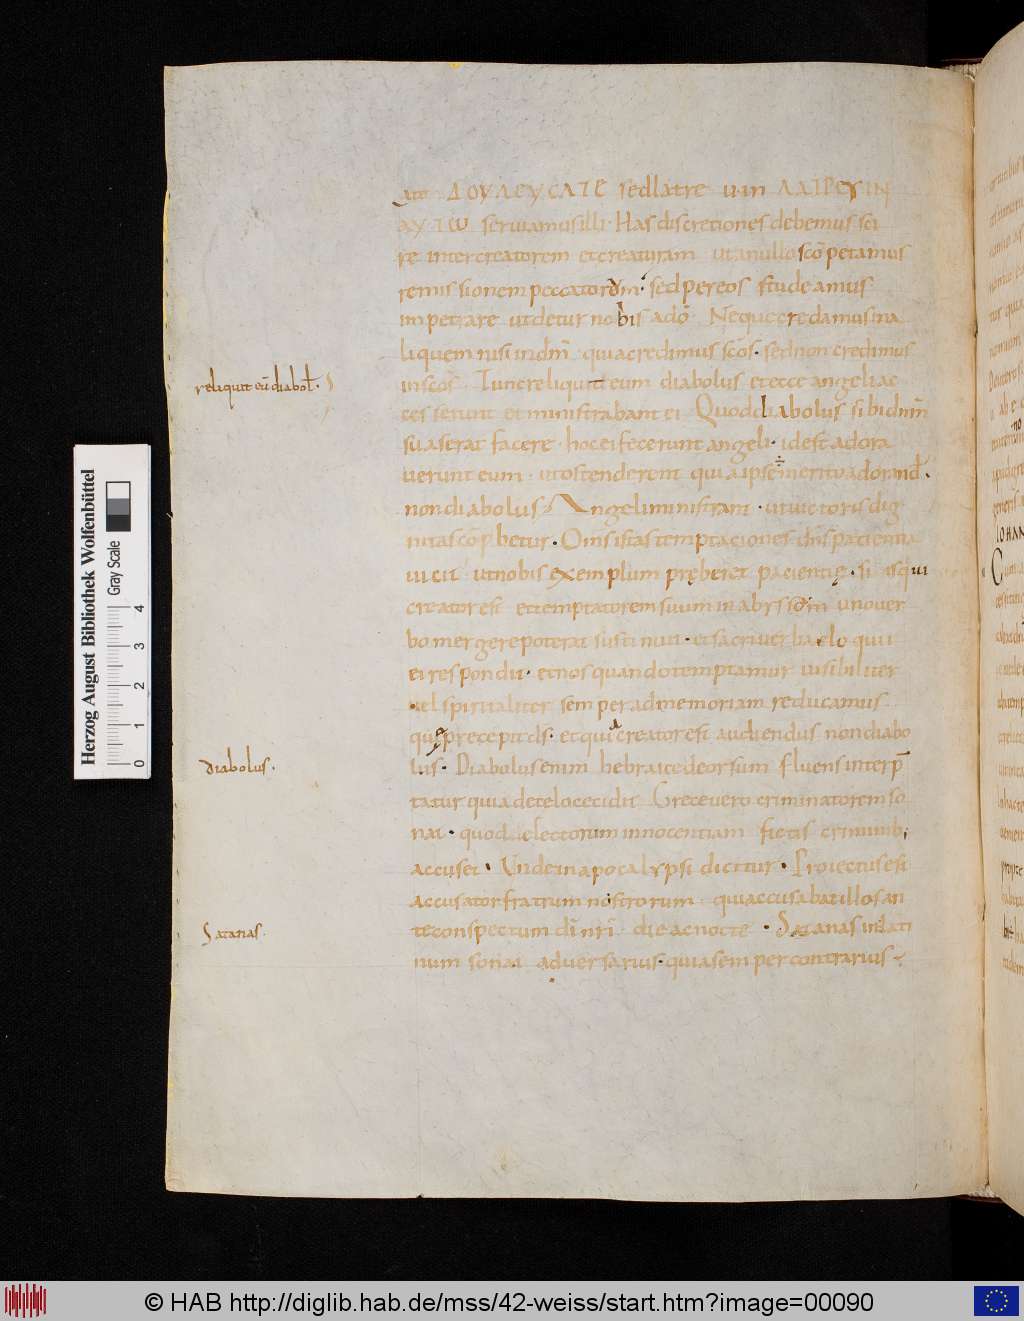 ato ΔΟΥΛΕΥCΑΤΕ sed latreuuin ΛΑΤΡΕΥΙΝ
ΑΥΤΩ seruiamus illi· Has discretiones debemus sci
re inter creatorem et creaturam ut a nullo sc̄o petamus
remissionem peccatorum· sed per eos studeamus
impetrare ut detur nobis a dō Neque credamus in a
liquem nisi in dm̄ quia credimus sc̄os· sed non credimus
in sc̄os Tunc reliquit eum diabolus et ecce angeli ac
ces serunt et ministrabant ei Quod diabolus sibi dnm̄
suaserat facere· hoc ei fecerunt angeli· id est adora
uerunt eum· ut ostenderent quia ipse merito adorand̄·
non diabolus Angeli ministrant· ut uictoris dig
nitas
uicit ut nobis exemplum pręberet pacientię· si is qui
creator est et temptatorem suum in abyssum uno uer
bo mergere poterat sustinuit· et sacri uerba eloquii
ei respondit· et nos quando temptamur uisibiliter
uel spiritaliter semper ad memoriam reducamus
quę precepit ds̄· et quia creator est audiendus non diabo
lus· Diabolus enim hebraice deorsum fluens interp̄
tatur quia de celo cecidit Grece uero criminatorem so
nat· quod electorum innocentiam fictis criminib;
accuset· Unde in apocalypsi dicitur· Proiectus est
accusator fratrum nostrorum· qui accusabat illos an
te conspectum dī nrī· die ac nocte· Satanas in lati
num sonat aduersarius· quia semper contrarius
reliquit eū diabol̄·
diabolus·
Satanas·
Herzog August Bibliothek Wolfenbüttel
Gray Scale
0 1 2 3 4
© HAB http://diglib.hab.de/mss/42-weiss/start.htm?image=00090